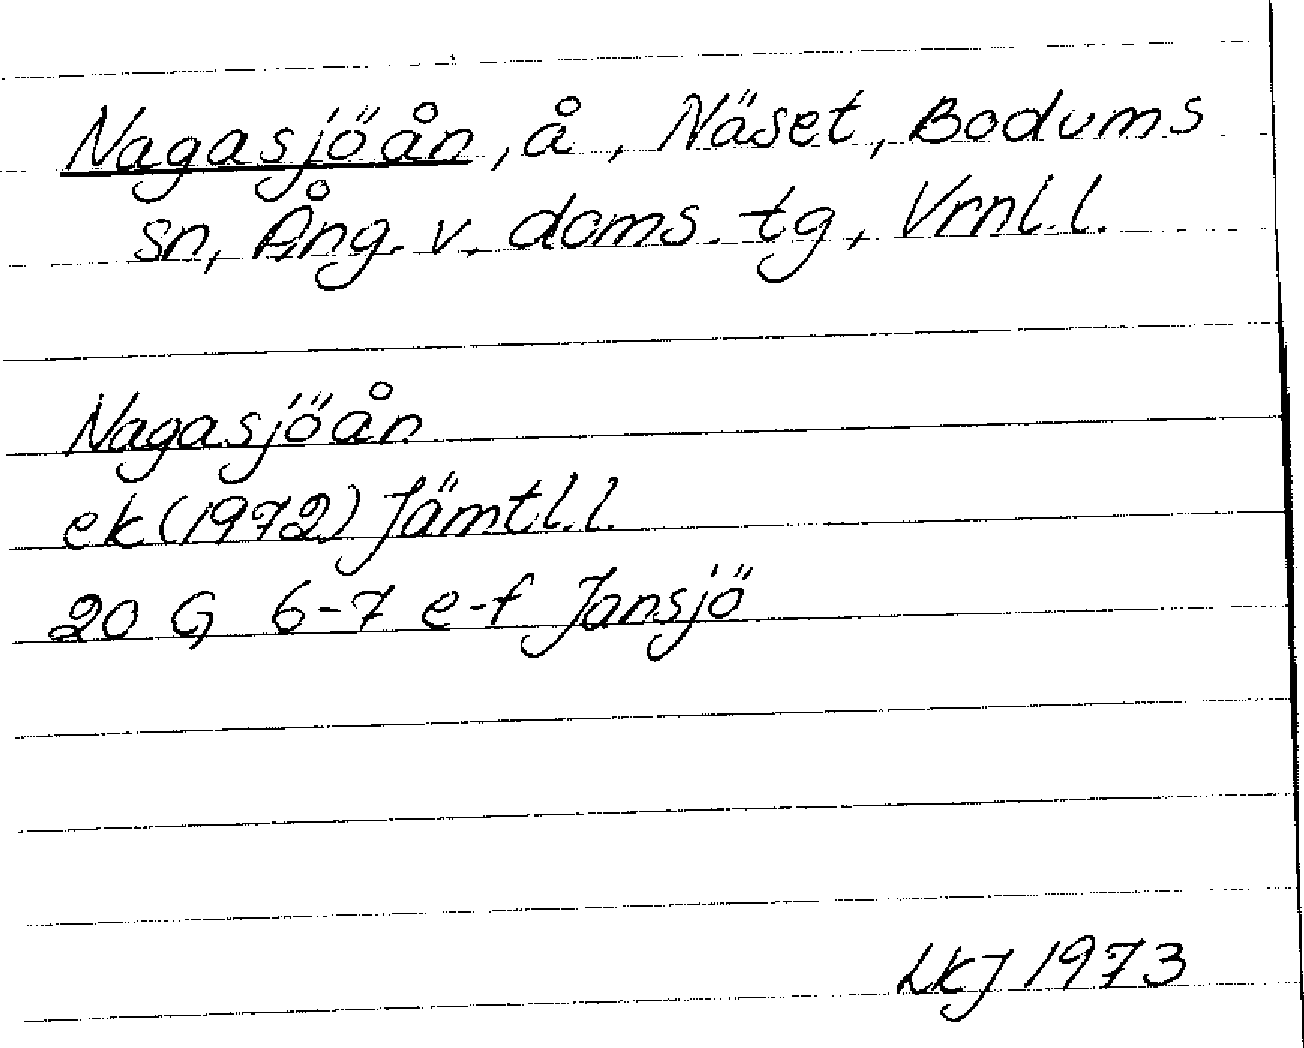 Nagasjöån, å, Näset, Bodums
sn, Ång. v. doms. tg, Vrnl.l.
Nagasjöån
ek (1972) Jämtl.l.
20 G 6-7 e-f Jansjö
LKJ 1973